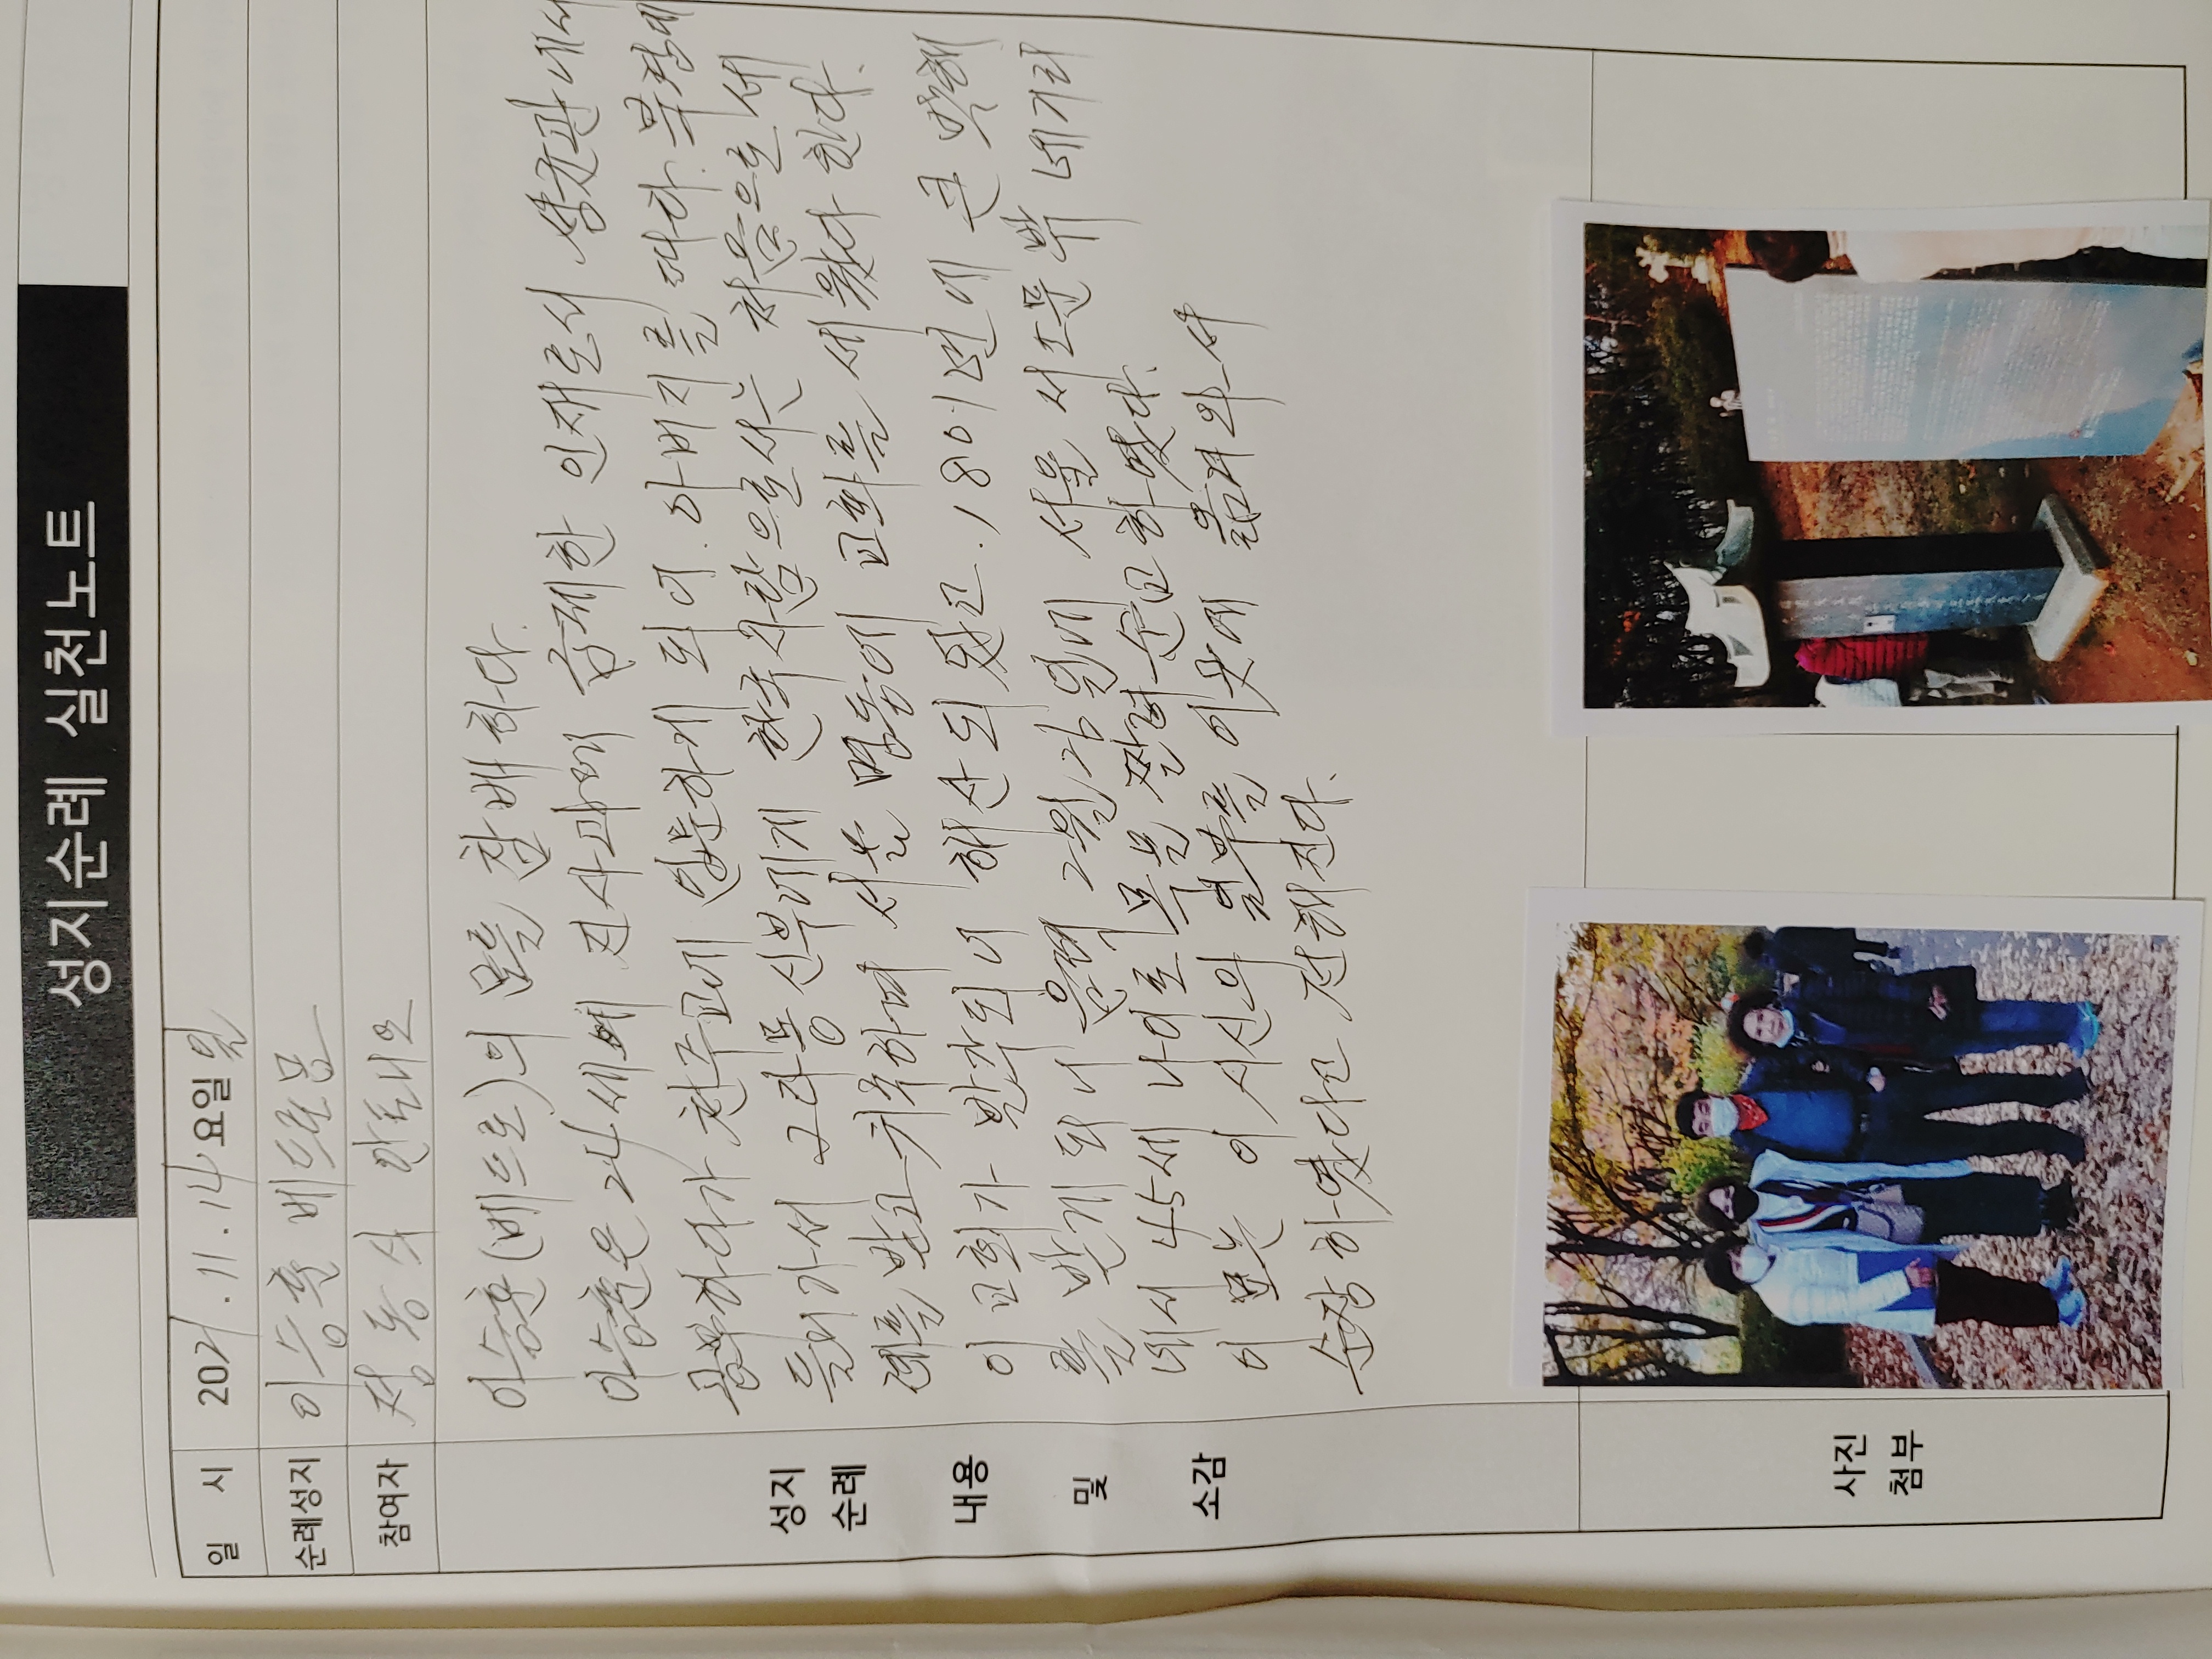 성지순례 실천노트
일 시 2021.11.14 요일 일
순례성지 이승훈 베드로묘
참여자 정동식 안토니오
성지 순례 내용 및 소감
이승훈(베드로)의 묘를 참배하다.
이승훈은 24세에 진사과에 급제한 인재로서 성균관에서
공부하다가 천주교에 입문하게 되어. 아버지를 따라 북경에
들어가서 그라몽 신부에게 한국사람으로서는 처음으로 세
례를 받고 귀국하여 서울 명동에 교회를 세웠다 한다.
이 교회가 발각되어 해산되 왔고. 1801년에 큰 박해
를 받게 되어 음력 2월 26일에 서울 서소문밖 네거리
에서 45세 나이로 목을 짤려 순교하였다.
이 묘는 이 시신의 일부를 이곳에 옮겨 와서
순장 하였다고 전해진다.
사진 첨부